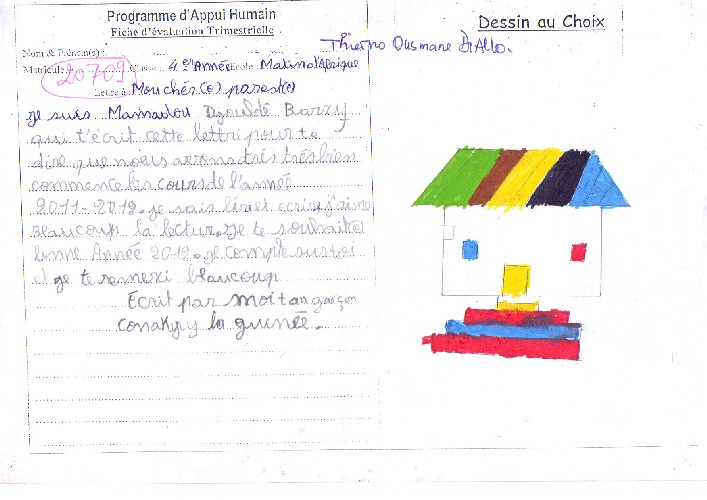 Programme d'Appui Humain
Fiche d'évaluation Trimestrielle
Dessin au Choix
Nom & Prénom(s) : Thierno Ousmane DiAllo.
Matricule 20709 Classe : 4e Année Ecole : Matimo d'Afrique
Lettre à : Mouchér(e) parest(e)
je suis Mamadou Djouldé Barry
qui t'écrit cette lettri pour te
dire que nous avrons trés trés bien
commence les cours de l'année
2011-2012. je sais lir et ecrire j'aime
Beaucoup la lecture. je te souhaite
bonne Année 2012. je compte sur toi
et je te remerci blaucoup
Écrit par moi ton garçon
Conakyry la guinée.